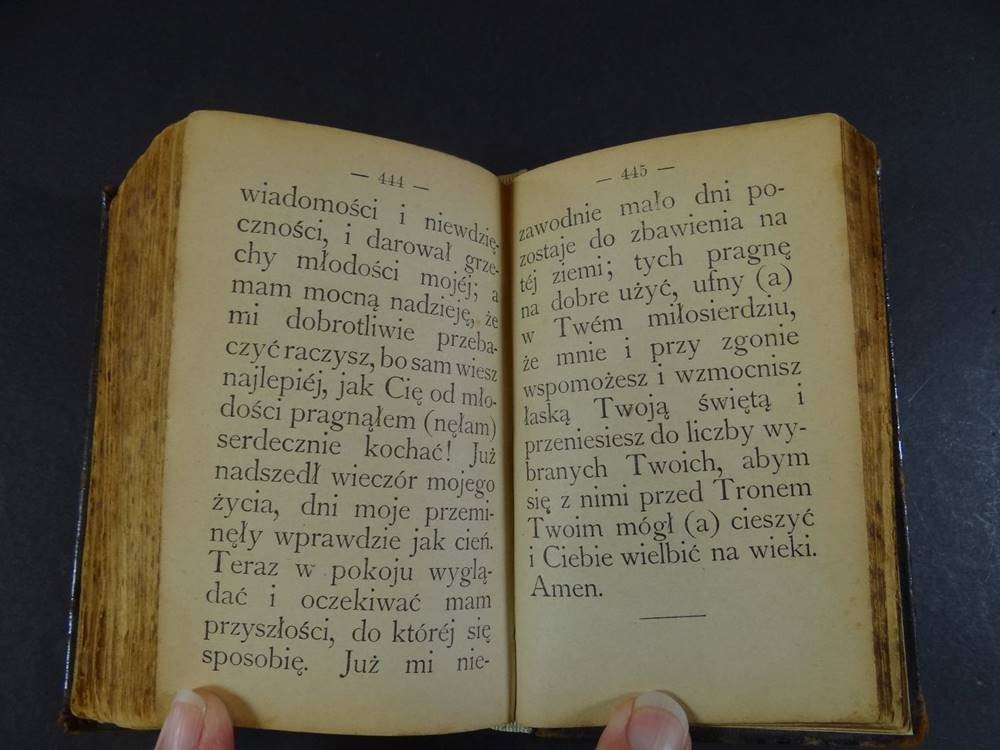 — 444 —
wiadomości i niewdzię-
czności, i darował grze-
chy młodości mojéj; a
mam mocną nadzieję, że
mi dobrotliwie przeba-
czyć raczysz, bo sam wiesz
najlepiéj, jak Cię od mło-
dości pragnąłem (nęłam)
serdecznie kochać! Już
nadszedł wieczór mojego
życia, dni moje przemi-
nęły wprawdzie jak cień.
Teraz w pokoju wyglą-
dać i oczekiwać mam
przyszłości, do któréj się
sposobię. Już mi nie-
— 445 —
zawodnie mało dni po-
zostaje do zbawienia na
téj ziemi; tych pragnę
na dobre użyć, ufny (a)
w Twém miłosierdziu,
że mnie i przy zgonie
wspomożesz i wzmocnisz
łaską Twoją świętą i
przeniesiesz do liczby wy-
branych Twoich, abym
się z nimi przed Tronem
Twoim mógł (a) cieszyć
i Ciebie wielbić na wieki.
Amen.